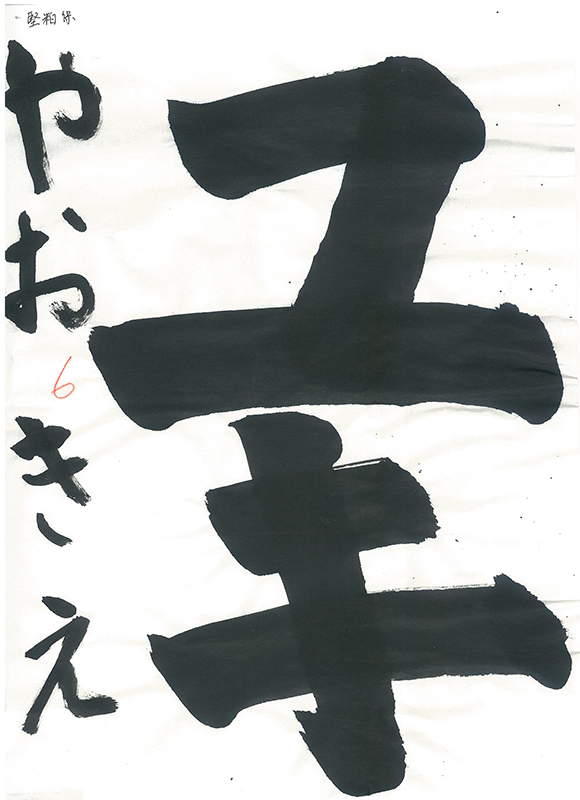 堅粕保
ユキ
やお きえ
6